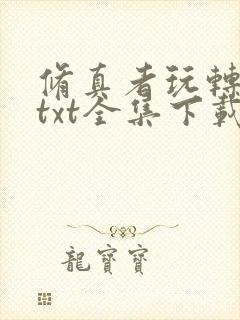 脩真者玩轉
txt全集下載
龍寶寶